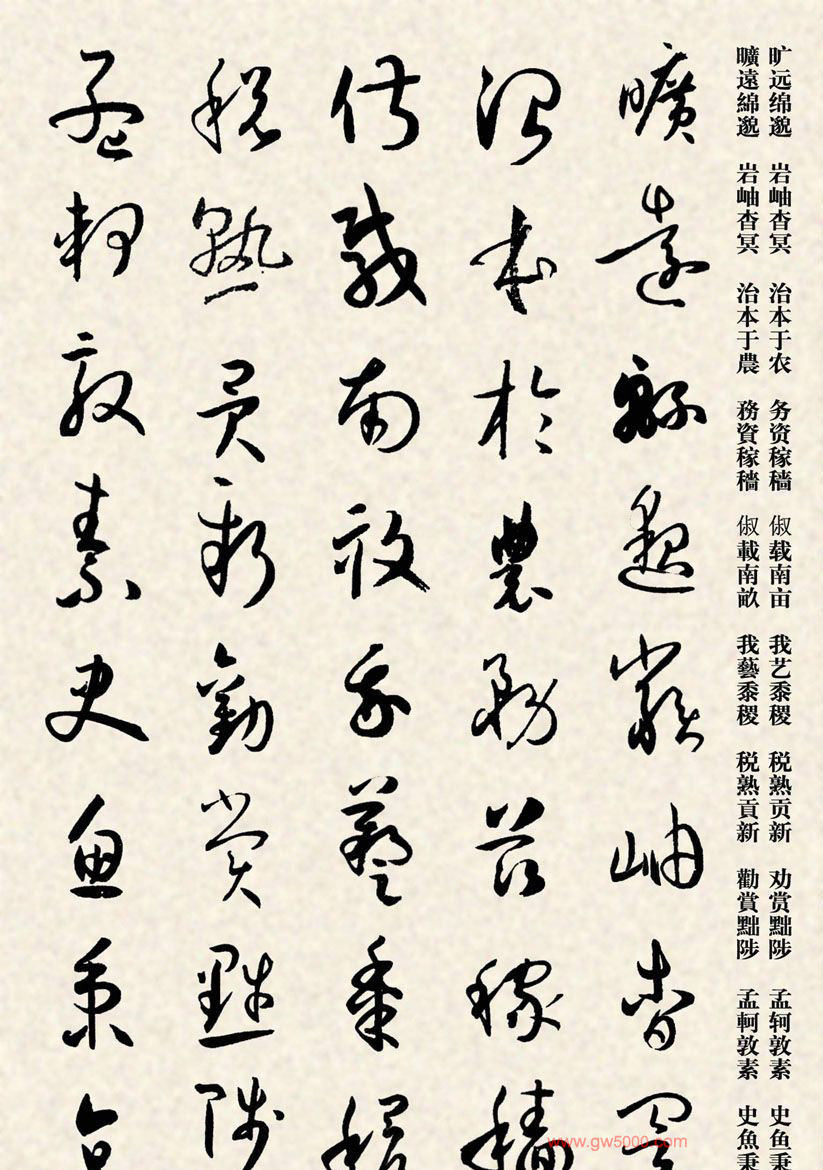 旷远绵邈 岩岫杳冥 治本于农 务资稼穑 俶载南亩 我艺黍稷 税熟贡新 劝赏黜陟 孟轲敦素 史鱼秉
曠遠綿邈 岩岫杳冥 治本于農 務資稼穡 俶載南畝 我藝黍稷 税熟貢新 勸賞黜陟 孟軻敦素 史魚秉
曠遠緜邈巖岫杳冥
治本於農務茲稼穡
俶載南畝我藝黍稷
税熟貢新勸賞黜陟
孟軻敦素史魚秉
www.gw5000.com